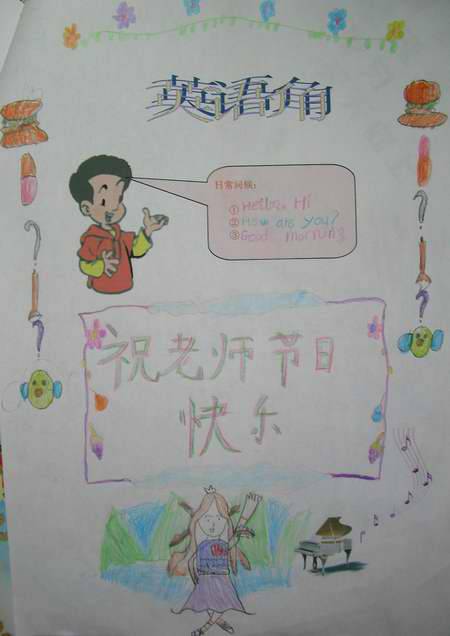 英语角
日常问候:
①Hello, Hi
②How are you?
③Good morning
祝老师节日
快乐